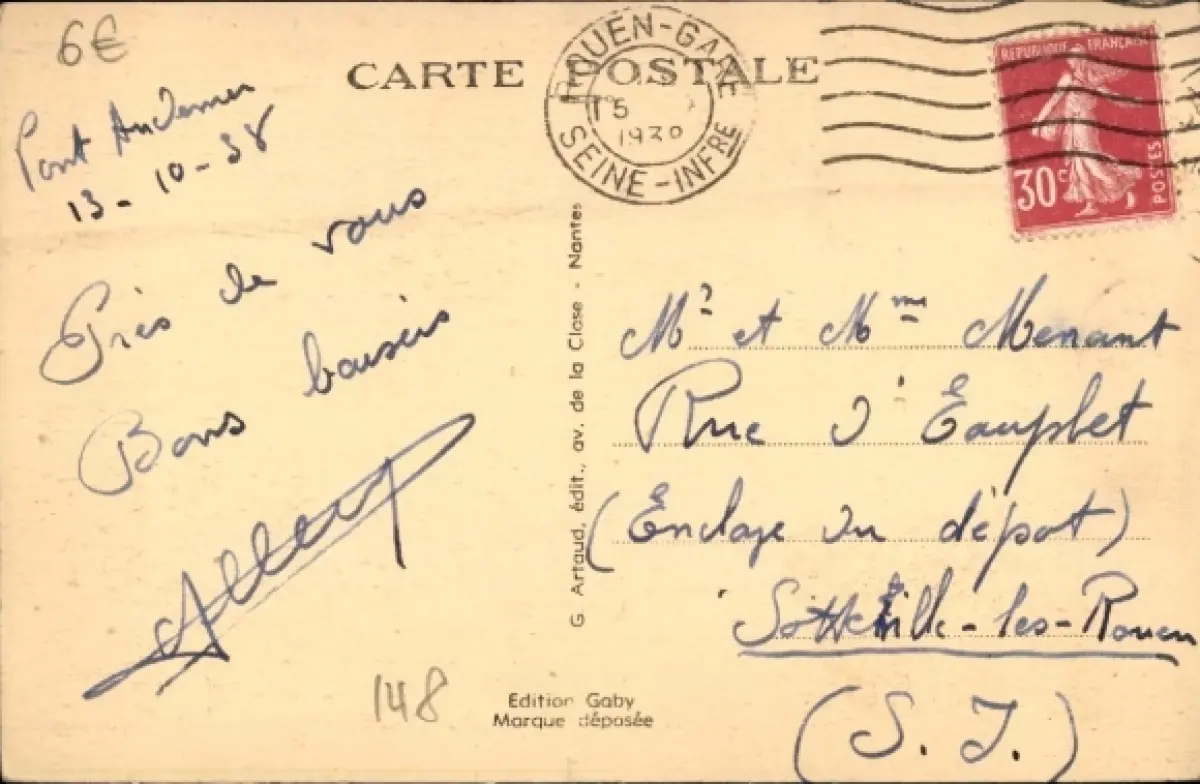 6€
CARTE POSTALE
ROUEN-GARE
15
1930
SEINE-INFRE
REPUBLIQUE FRANÇAISE
30c
POSTES
Pont Audemer
13-10-38
Près de vous
Bons baisers
Albert
Mr et Mme Menant
Rue d'Eauplet
(Enclave du dépôt)
Sotteville-les-Rouen
(S. I.)
G. Artaud, édit., av. de la Close - Nantes
148
Edition Gaby
Marque déposée